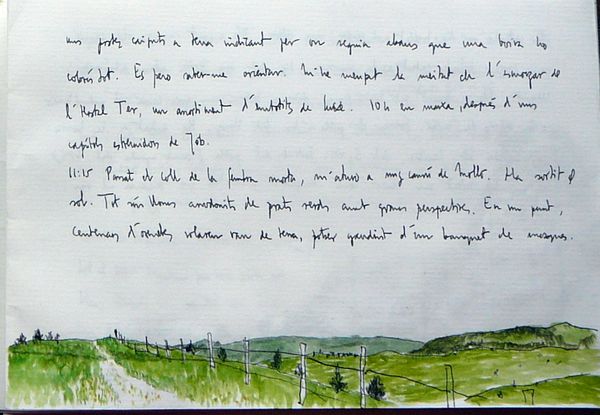 uns postes caiguts a terra indicant per on seguia abans que una boira ho
cobrís tot. Es però saber-me orientar. M'he menjat la meitat de l'esmorzar de
l'Hostal Ter, un assortiment d'embotits de luxe. 10h en marxa, després d'uns
capítols de Job.
11:15 Passat el coll de la fembra morta, m'aturo a mig camí de Molló. Ha sortit el
sol. Tot són llomes de prats verds amb grans perspectives. En un punt,
centenars d'orenetes volaven ran de terra, potser gaudint d'un banquet de mosques.